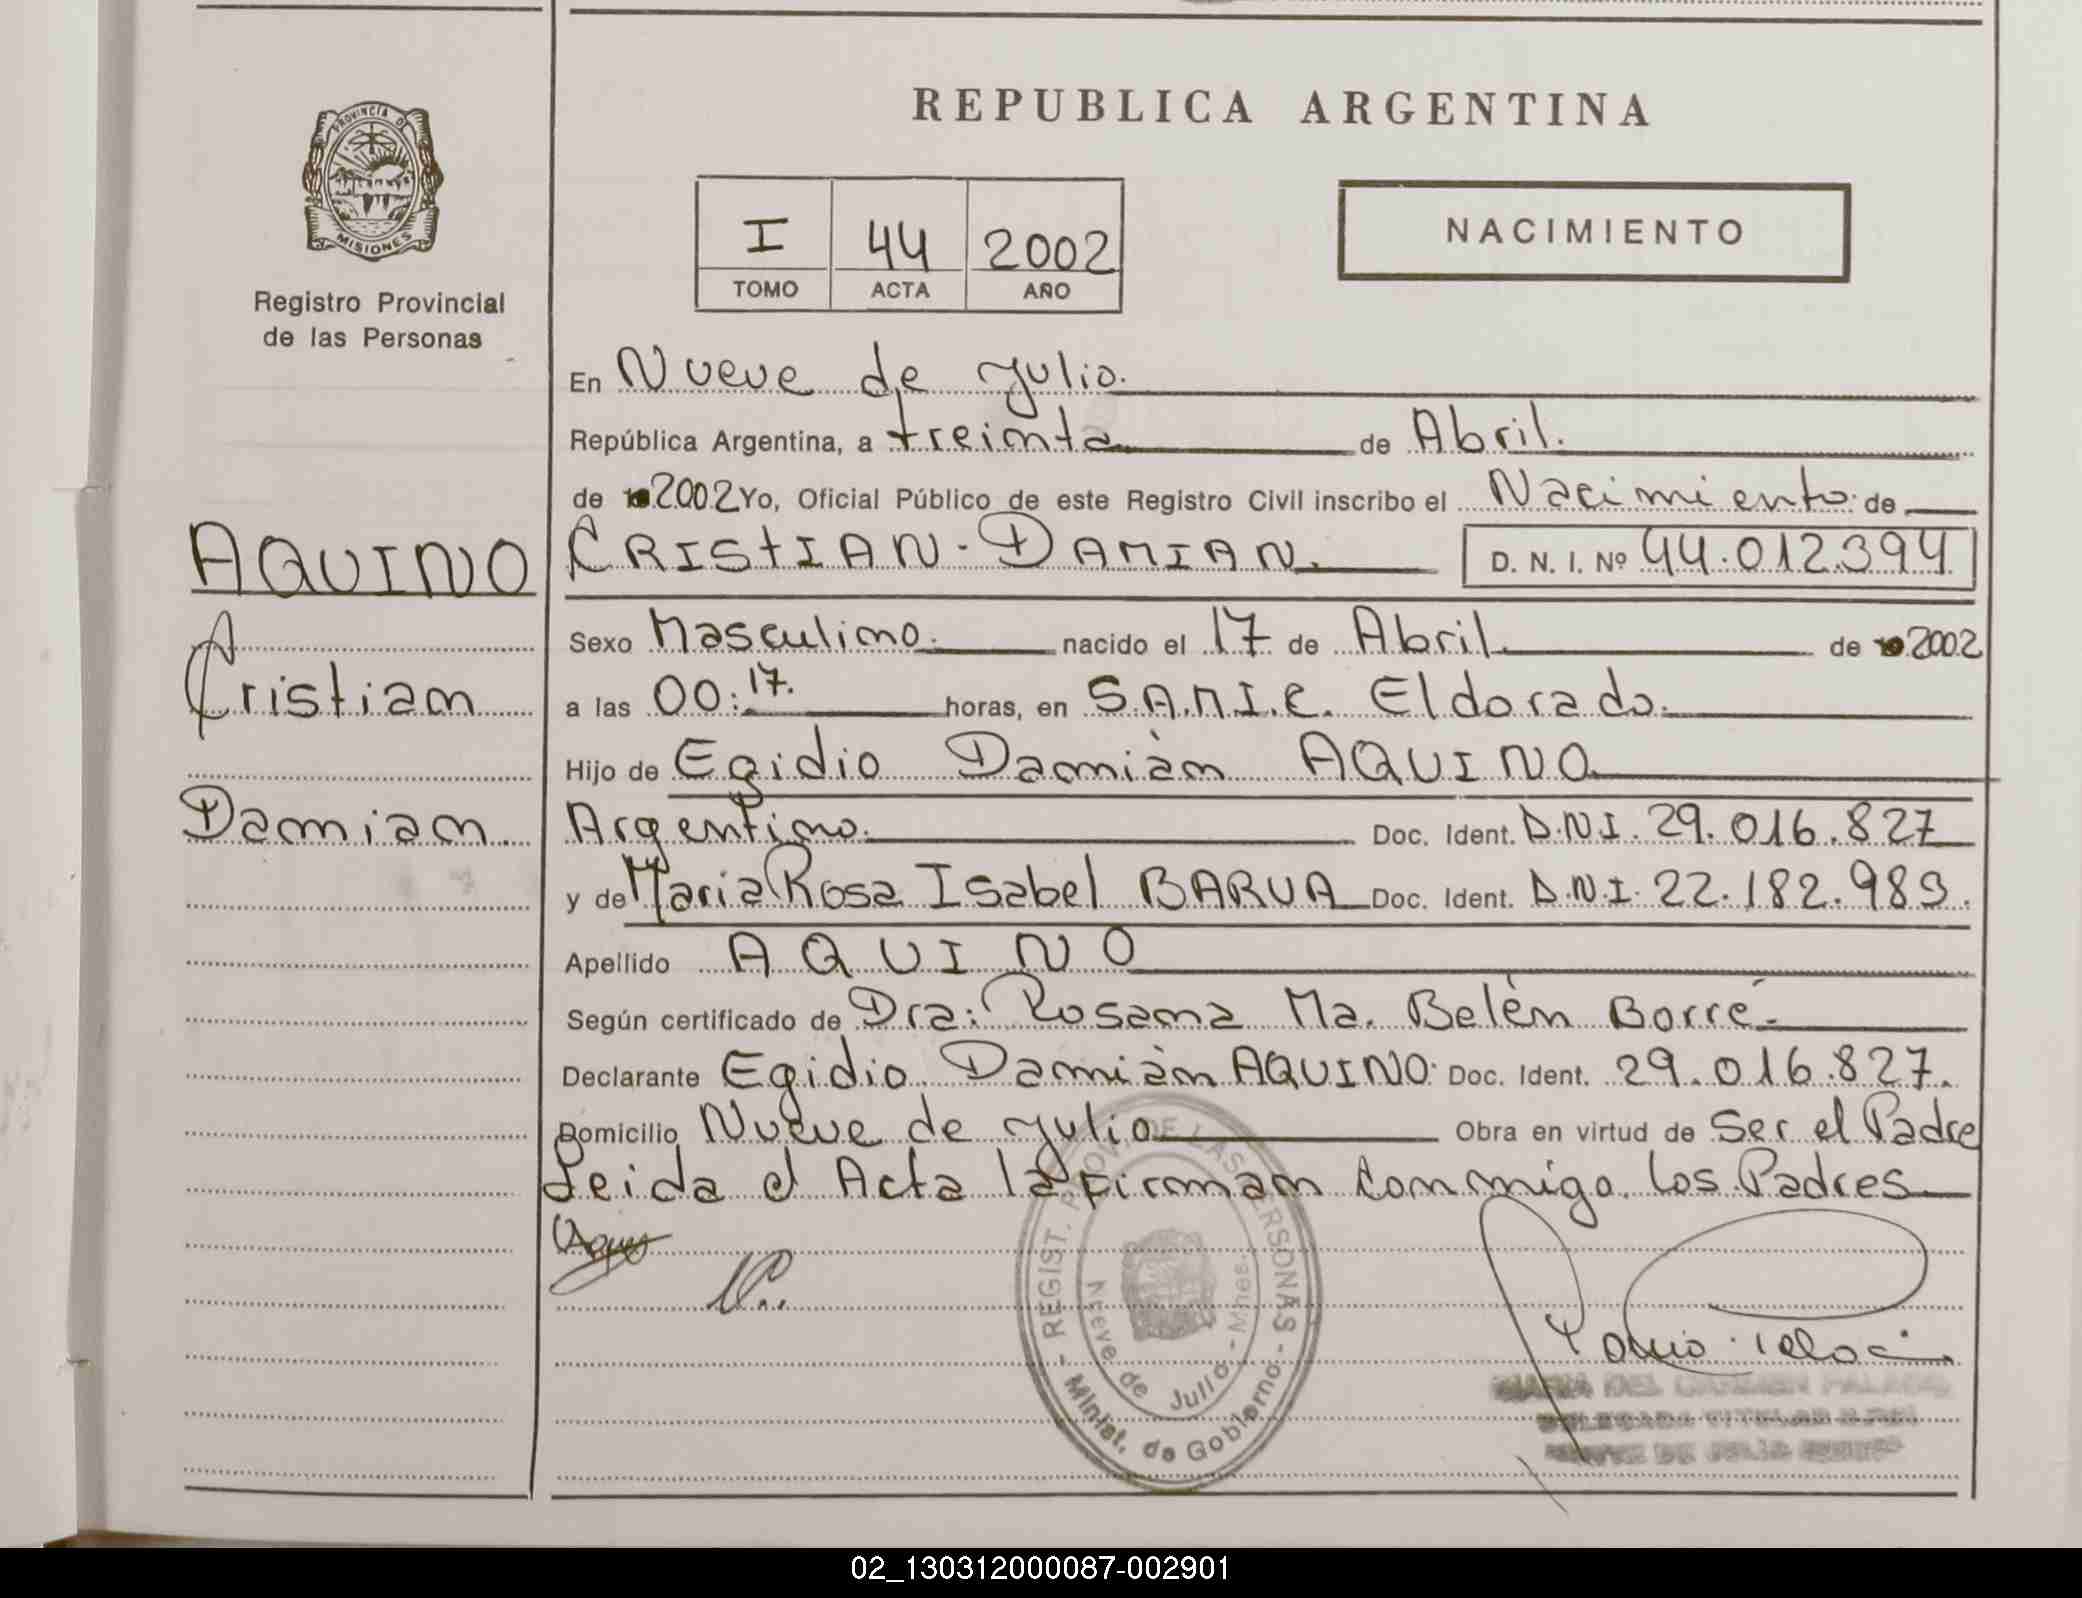 REPUBLICA ARGENTINA
PROVINCIA DE
MISIONES
Registro Provincial
de las Personas
I 44 2002
TOMO ACTA AÑO
NACIMIENTO
En Nueve de Julio.
República Argentina, a treinta de Abril.
de 2002 Yo, Oficial Público de este Registro Civil inscribo el Nacimiento de
AQUINO
Cristian
Damian.
CRIStIAN - DAMIAN. D. N. I. Nº 44.012.394
Sexo Masculino. nacido el 17 de Abril. de 2002
a las 00:17. horas, en S.A.M.I.C. Eldorado.
Hijo de Egidio Damiàn AQUINO
Argentino. Doc. Ident. D.N.I. 29.016.827
y de Maria Rosa Isabel BARUA Doc. Ident. D.N.I. 22.182.989.
Apellido AQUINO
Según certificado de Dra: Rosana Ma. Belén Borré.
Declarante Egidio Damiàn AQUINO. Doc. Ident. 29.016.827.
Domicilio Nueve de Julio Obra en virtud de Ser el Padre
Leida el Acta la Firman conmigo los Padres
REGIST. PROV. DE LAS PERSONAS
Nueve de Julio - Mnes.
- Minist. de Gobierno -
02_130312000087-002901